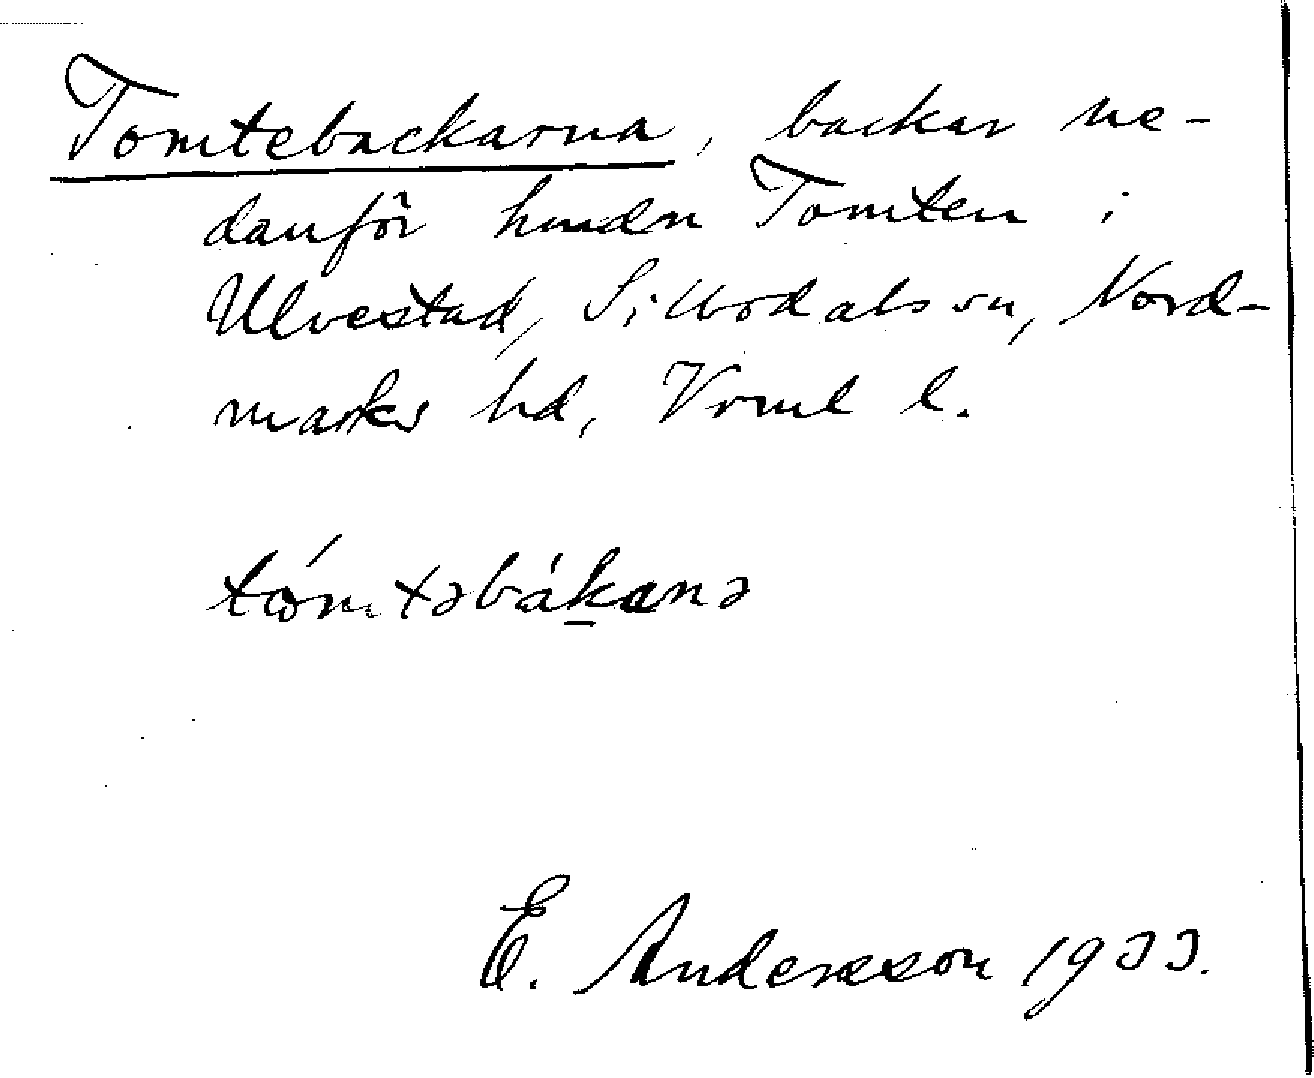 Tomtebackarna, backar ne-
danför hmdn Tomten i
Ulvestad, Sillbodals sn, Nord-
marks hd, Vrml l.
tómtəbákanə
E. Andersson 1933.